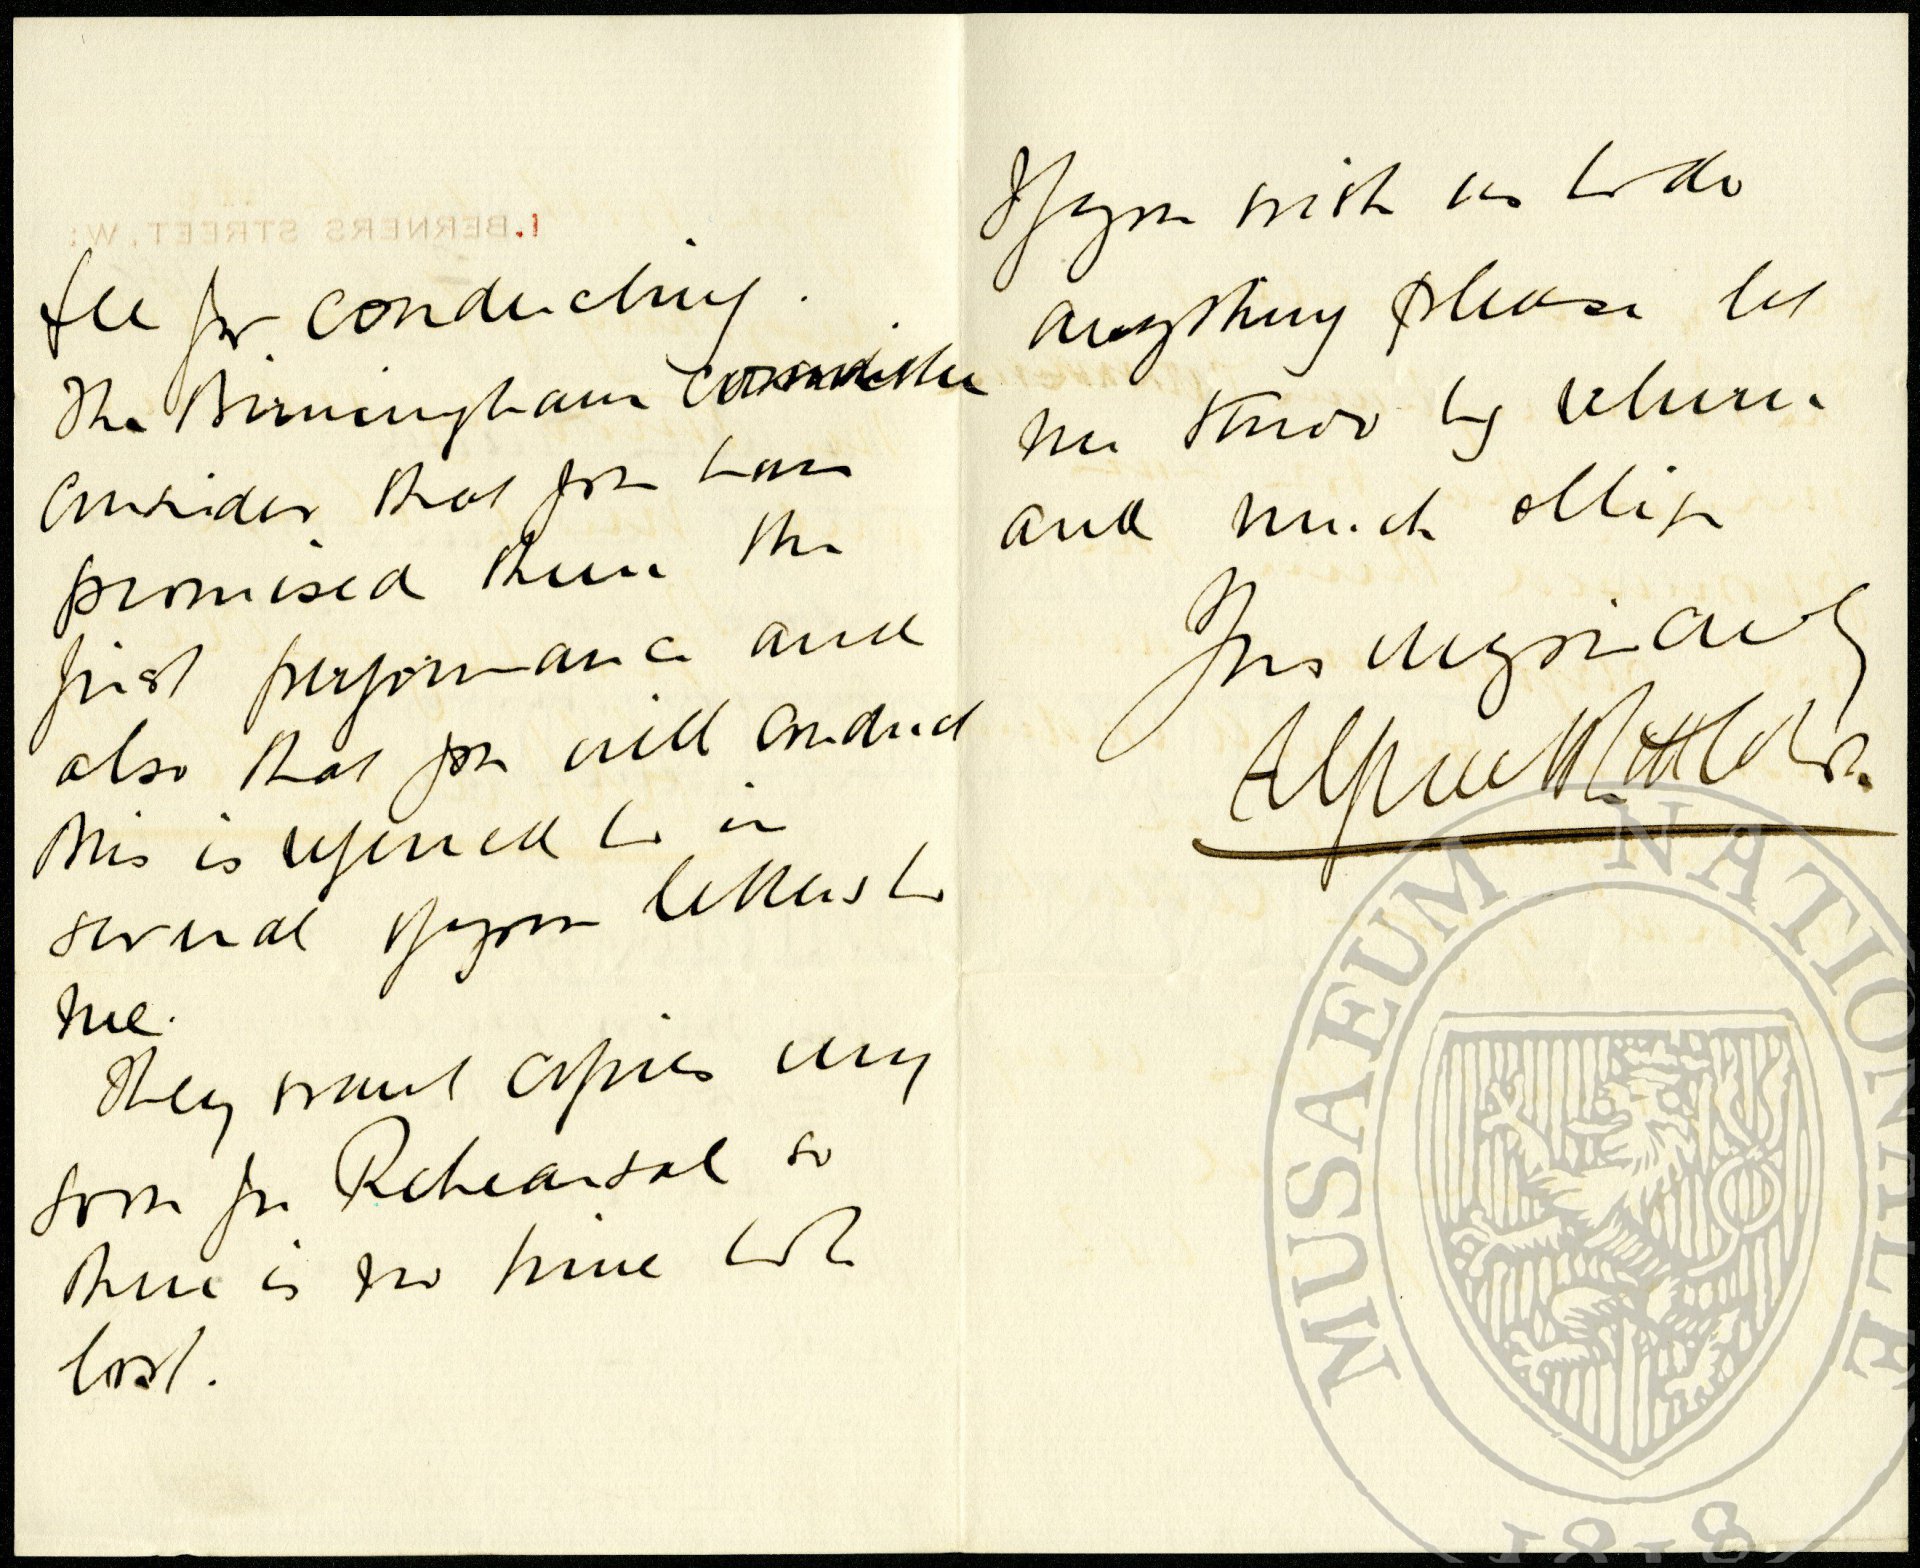 1. BERNERS STREET, W.
fee for conducting.
The Birmingham Committee
consider that you have
promised them the
first performance and
also that you will conduct
this is referred to in
several of your letters to
me.
They want copies very
soon for Rehearsal so
there is no time to be
lost.
If you wish us to do
anything please let
me know by return
and much oblige
Yours very sincerely
Alfred H Littleton.
MUSAEUM NATIONALE
1818